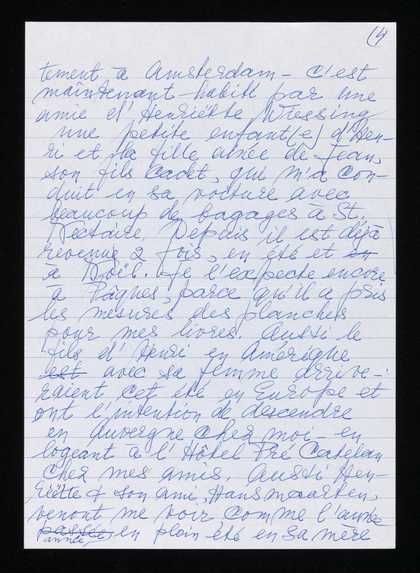 (4
tement à Amsterdam - c'est
maintenant habité par une
amie d'Henriëtte Wressing
une petite enfant(e) d'Hen-
ri et la fille aînée de Jean,
son fils cadet, qui m'a con-
duit en sa voiture avec
beaucoup de bagages à St.
Nectaire. Depuis il est déjà
revenu 2 fois, en été et en
à Noël. Je l'expecte encore
à Pâques, parce qu'il a pris
les mesures des planches
pour mes livres. Aussi le
fils d'Henri en Amérique
est avec sa femme arrive-
raient cet été en Europe et
ont l'intention de descendre
en Auvergne chez moi - en
logeant à l'Hôtel Pré Catelan
chez mes amis. Aussi Hen-
riëtte & son ami, Hansmaarten,
venont me voir, comme l'autre
passée, en plein été en sa mère
année